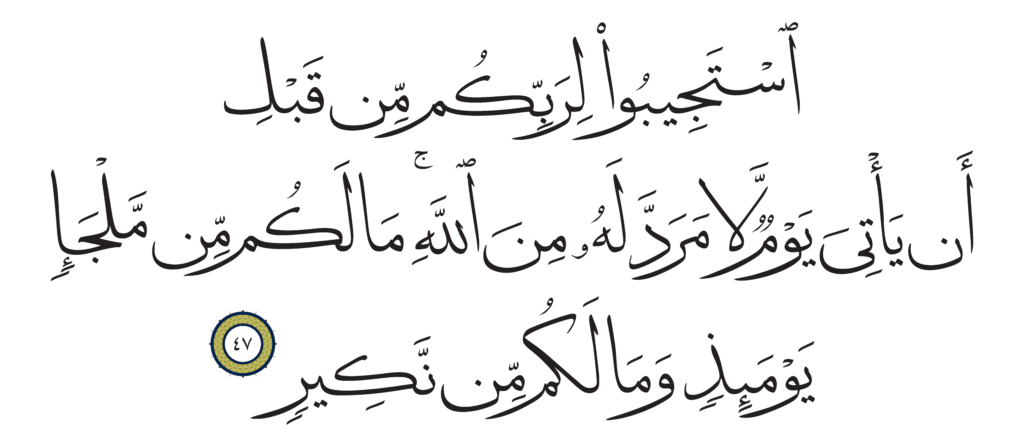 ٱسْتَجِيبُوا۟ لِرَبِّكُم مِّن قَبْلِ
أَن يَأْتِىَ يَوْمٌ لَّا مَرَدَّ لَهُۥ مِنَ ٱللَّهِ ۚ مَا لَكُم مِّن مَّلْجَإٍ
يَوْمَئِذٍ وَمَا لَكُم مِّن نَّكِيرٍ ٤٧